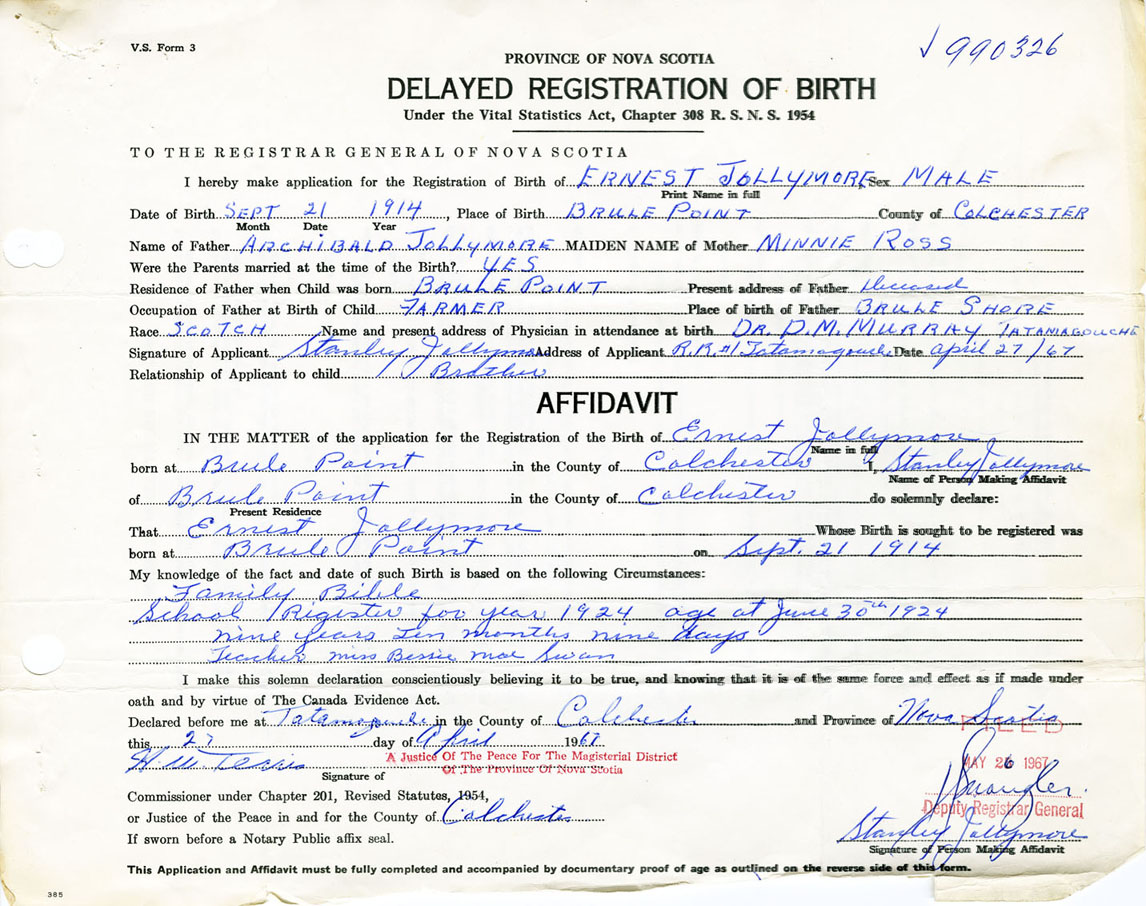 V.S. Form 3
✓ 990326
PROVINCE OF NOVA SCOTIA
DELAYED REGISTRATION OF BIRTH
Under the Vital Statistics Act, Chapter 308 R. S. N. S. 1954
TO THE REGISTRAR GENERAL OF NOVA SCOTIA
I hereby make application for the Registration of Birth of ERNEST JOLLYMORE Sex MALE
Print Name in full
Date of Birth SEPT 21 1914, Place of Birth BRULE POINT County of COLCHESTER
Month Date Year
Name of Father ARCHIBALD JOLLYMORE MAIDEN NAME of Mother MINNIE ROSS
Were the Parents married at the time of the Birth? YES
Residence of Father when Child was born BRULE POINT Present address of Father Deceased
Occupation of Father at Birth of Child FARMER Place of birth of Father BRULE SHORE
Race SCOTCH Name and present address of Physician in attendance at birth DR. D. M. MURRAY TATAMAGOUCHE
Signature of Applicant Stanley Jollymore Address of Applicant R.R.#1 Tatamagouche Date April 27/67
Relationship of Applicant to child Brother
AFFIDAVIT
IN THE MATTER of the application for the Registration of the Birth of Ernest Jollymore
Name in full
born at Brule Point in the County of Colchester I, Stanley Jollymore
Name of Person Making Affidavit
of Brule Point in the County of Colchester do solemnly declare:
Present Residence
That Ernest Jollymore Whose Birth is sought to be registered was
born at Brule Point on Sept. 21 1914
My knowledge of the fact and date of such Birth is based on the following Circumstances:
Family Bible
School Rigister for year 1924 age at June 30th 1924
nine years ten months nine days
Teacher miss Bessie Mae Swan
I make this solemn declaration conscientiously believing it to be true, and knowing that it is of the same force and effect as if made under
oath and by virtue of The Canada Evidence Act.
Declared before me at Tatamagouche in the County of Colchester and Province of Nova Scotia
FILED
this 27 day of April 1967
A Justice Of The Peace For The Magisterial District
Of The Province Of Nova Scotia
MAY 26 1967
Signature of
Commissioner under Chapter 201, Revised Statutes, 1954,
Deputy Registrar General
or Justice of the Peace in and for the County of Colchester
Stanley Jollymore
If sworn before a Notary Public affix seal.
Signature of Person Making Affidavit
This Application and Affidavit must be fully completed and accompanied by documentary proof of age as outlined on the reverse side of this form.
385